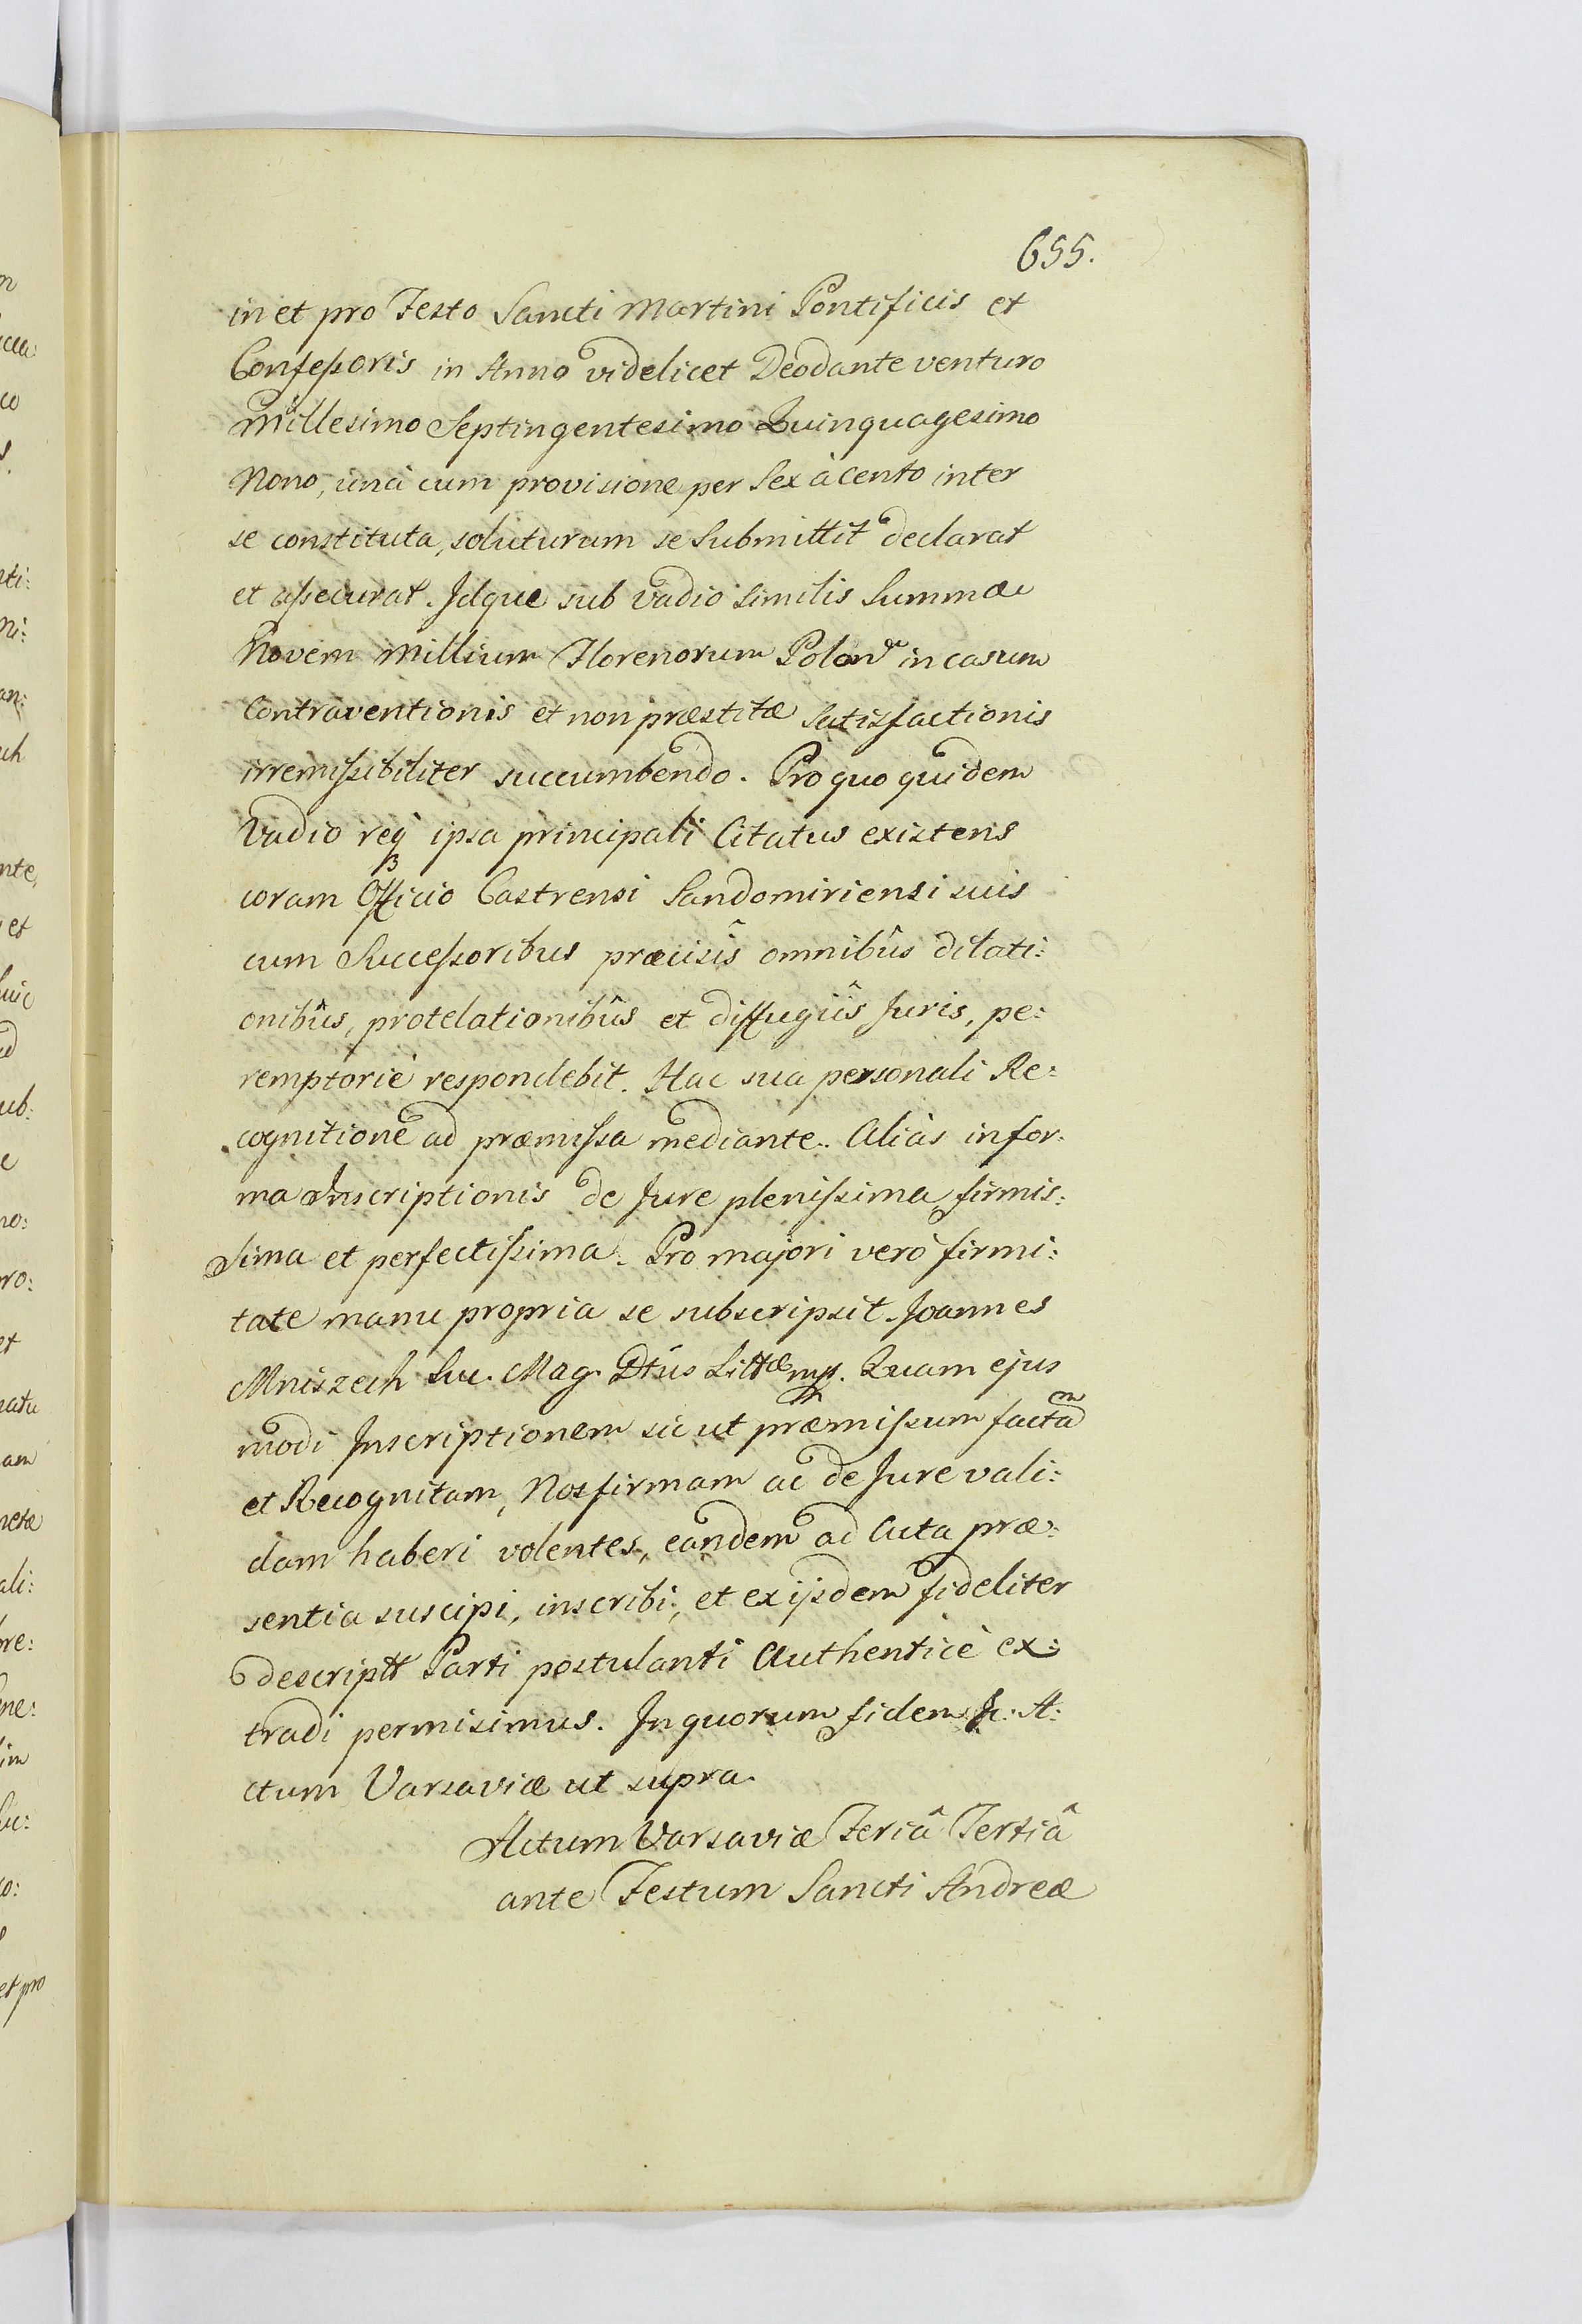 655.
in et pro Festo Sancti Martini Pontificis et
Confessoris in Anno videlicet Deodante venturo
Millesimo Septingentesimo Quinquagesimo
Nono, unà cum provisione per Sex à cento inter
se constituta, soluturum se Submittit declarat
et assecurat. Idque sub Vadio Similis Summæ
Novem Millium Florenorum Polon in casum
Contraventionis et non præstitæ Satisfactionis
irremissibiliter succumbendo. Pro quo quidem
Vadio req ipsa principali Citatus existens
coram Officio Castrensi Sandomiriensi suis
cum Successoribus præcisîs omnibûs dilati:
onibûs, protelationibûs et diffugiîs Juris, pe:
remptoriè respondebit. Hac sua personali Re:
cognitione ad præmissa mediante. Aliàs in for:
ma Inscriptionis de Jure plenissima, firmis:
sima et perfectissima. Pro majori verò firmi:
tate manu propria se subscripsit. Joannes
Mniszech Suc. Mag. Dtûs Littæ mp. Quam ejus
modi Inscriptionem sic ut præmissum factam
et Recognitam, Nos firmam ac de Jure vali:
dam haberi volentes, eandem ad Acta præ:
sentia suscipi, inscribi, et ex ijsdem fideliter
descriptt Parti postulanti Authenticè ex:
tradi permisimus. In quorum fidem &c. A:
ctum Varsaviæ ut supra.
Actum Varsaviæ Feriâ Tertiâ
ante Festum Sancti Andreæ